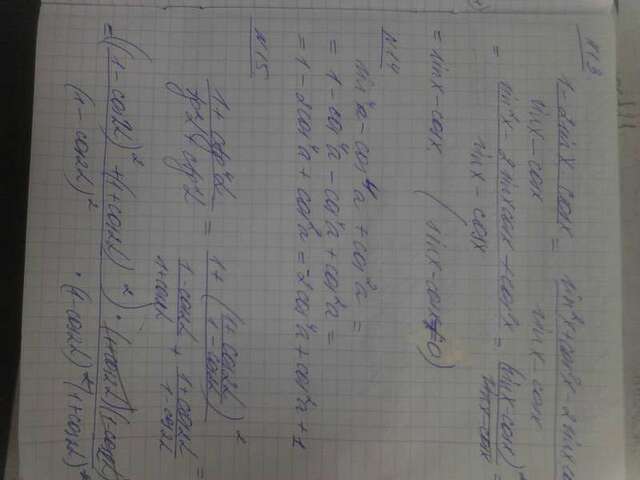 N13
1-2sinx·cosx / sinx-cosx = sin²x+cos²x-2sinx / sinx-cosx
= sin²x-2sinxcosx+cos²x / sinx-cosx = (sinx-cosx)² / sinx-cosx =
= sinx-cosx (sinx-cosx≠0)
N14
sin²α-cos⁴α+cos²α =
= 1-cos²α-cos⁴α+cos²α =
= 1-2cos²α+cos²α = -2cos²α+cos²α+1
N15
1+ctg⁴α / tg²α+ctg²α = 1+(1+cos2α / 1-cos2α)² / 1-cos2α / 1+cos2α + 1+cos2α / 1-cos2α =
= ((1-cos2α)²+(1+cos2α)²)·(1+cos2α)(1-cos2α) / (1-cos2α)²·(1-cos2α)²+(1+cos2α)²